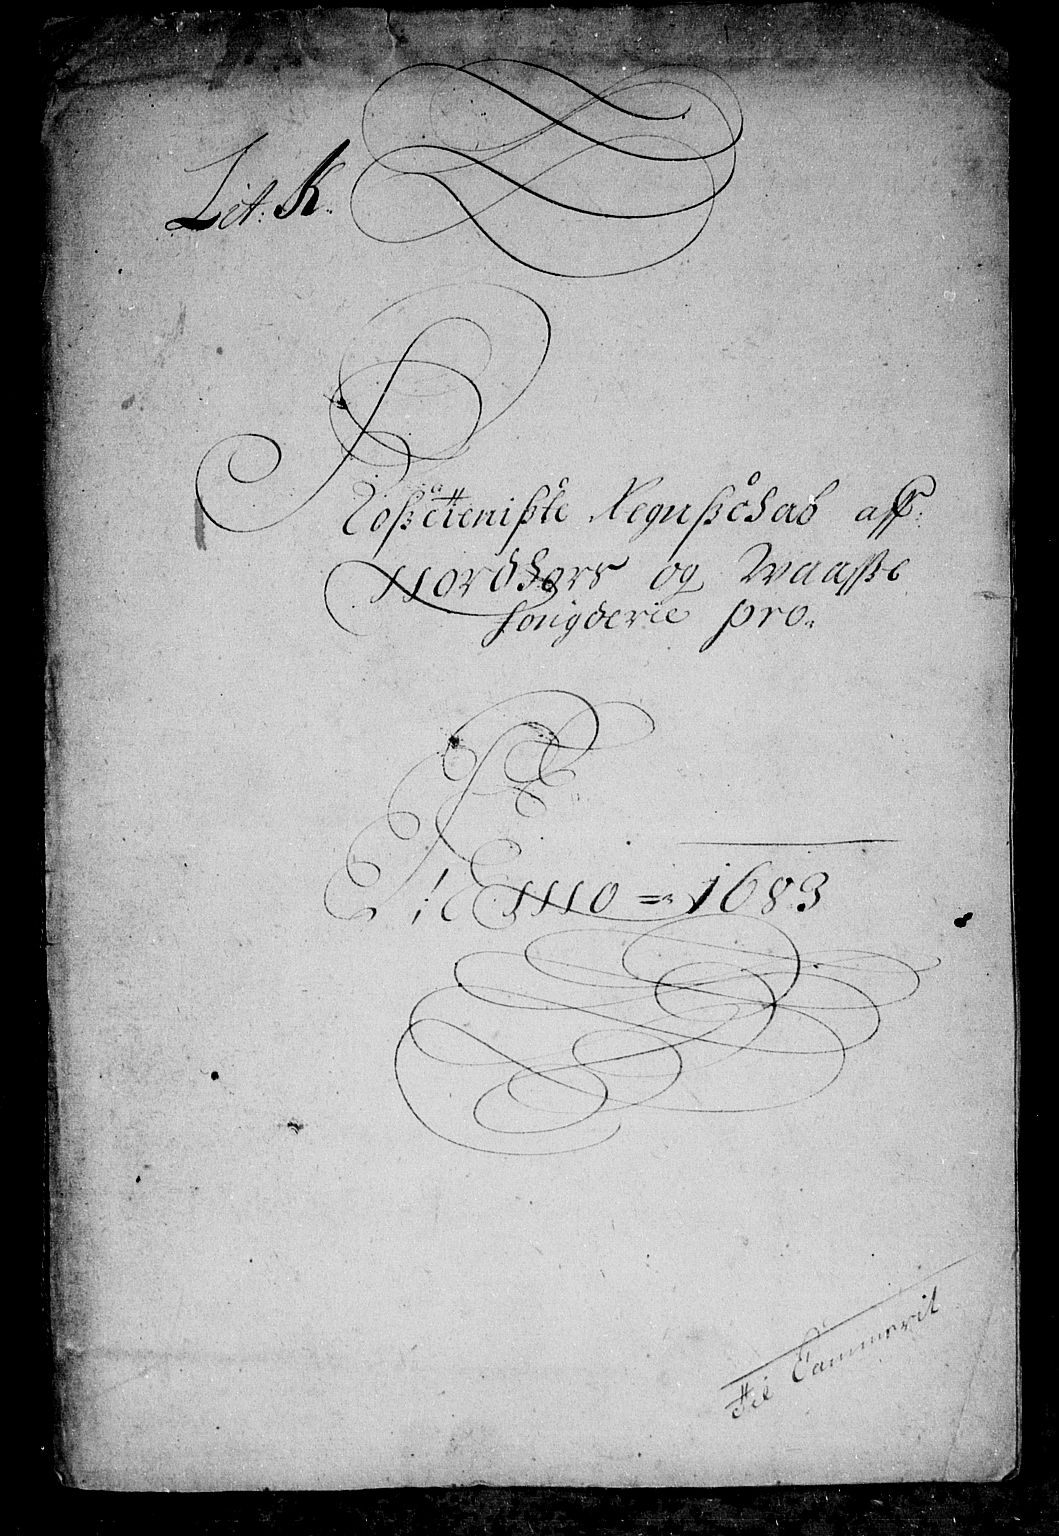 Lit: K.
Roßtienißte Regnßchab aff
Nordhors og Waasse
fougderie pro.
Anno = 1683
Til Cammerit